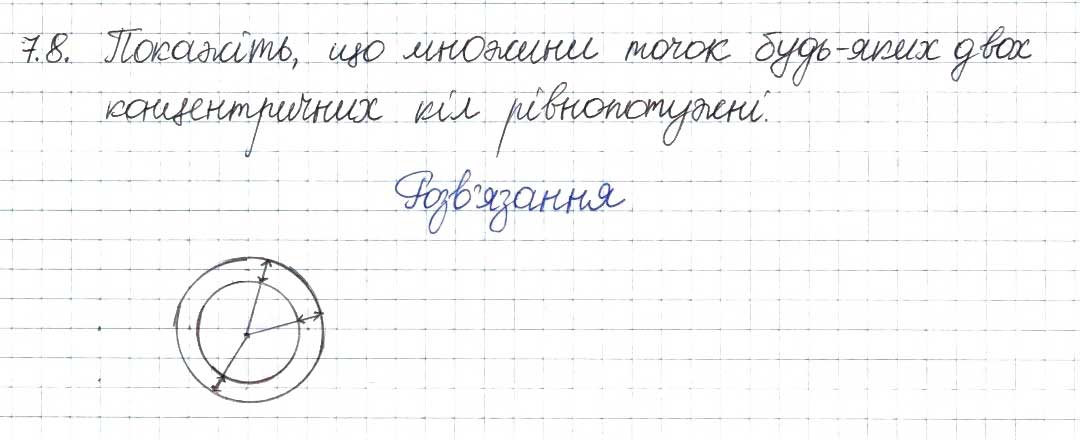 7.8. Покажіть, що множини точок будь-яких двох
концентричних кіл рівнопотужні.
Розв'язання